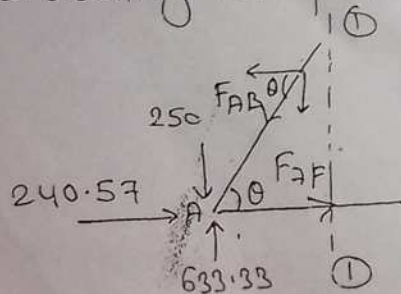 ①
θ
F_AB
250
F_7F
240.57
A
θ
633.33
①